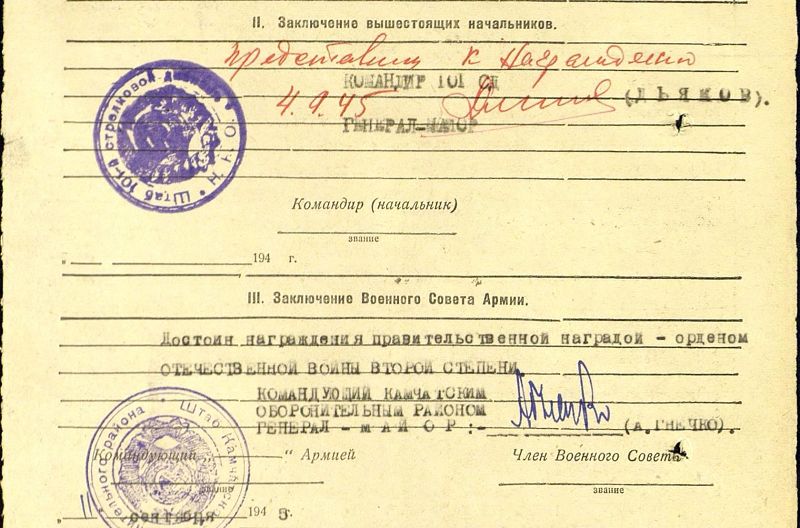 II. Заключение вышестоящих начальников.
Представить к награждению
КОМАНДИР 101 СД
4.9.45
(ДЬЯКОВ).
ГЕНЕРАЛ-МАЙОР
Штаб 101-й стрелковой
Командир (начальник)
звание
„ 194 г.
III. Заключение Военного Совета Армии.
Достоин награждения правительственной наградой - орденом
ОТЕЧЕСТВЕННОЙ ВОЙНЫ ВТОРОЙ СТЕПЕНИ
КОМАНДУЮЩИЙ КАМЧАТСКИМ
ОБОРОНИТЕЛЬНЫМ РАЙОНОМ
ГЕНЕРАЛ - МАЙОР:- (А.ГНЕЧКО).
Командующий “ Армией Член Военного Совета
звание звание
„ “ сентября 1945 г.